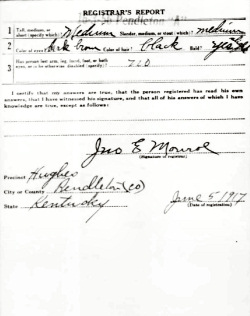 REGISTRAR'S REPORT
1 Tall, medium, or short (specify which)? Medium Slender, medium, or stout (which)? medium
2 Color of eyes? Dark brown Color of hair? black Bald?
3 Has person lost arm, leg, hand, foot, or both eyes, or is he otherwise disabled (specify)?
I certify that my answers are true, that the person registered has read his own
answers, that I have witnessed his signature, and that all of his answers of which I
have knowledge are true, except as follows:
Jno E Monroe
(Signature of registrar)
Precinct Hughes
City or County Pendleton (co)
State Kentucky
June 5 1917
(Date of registration)